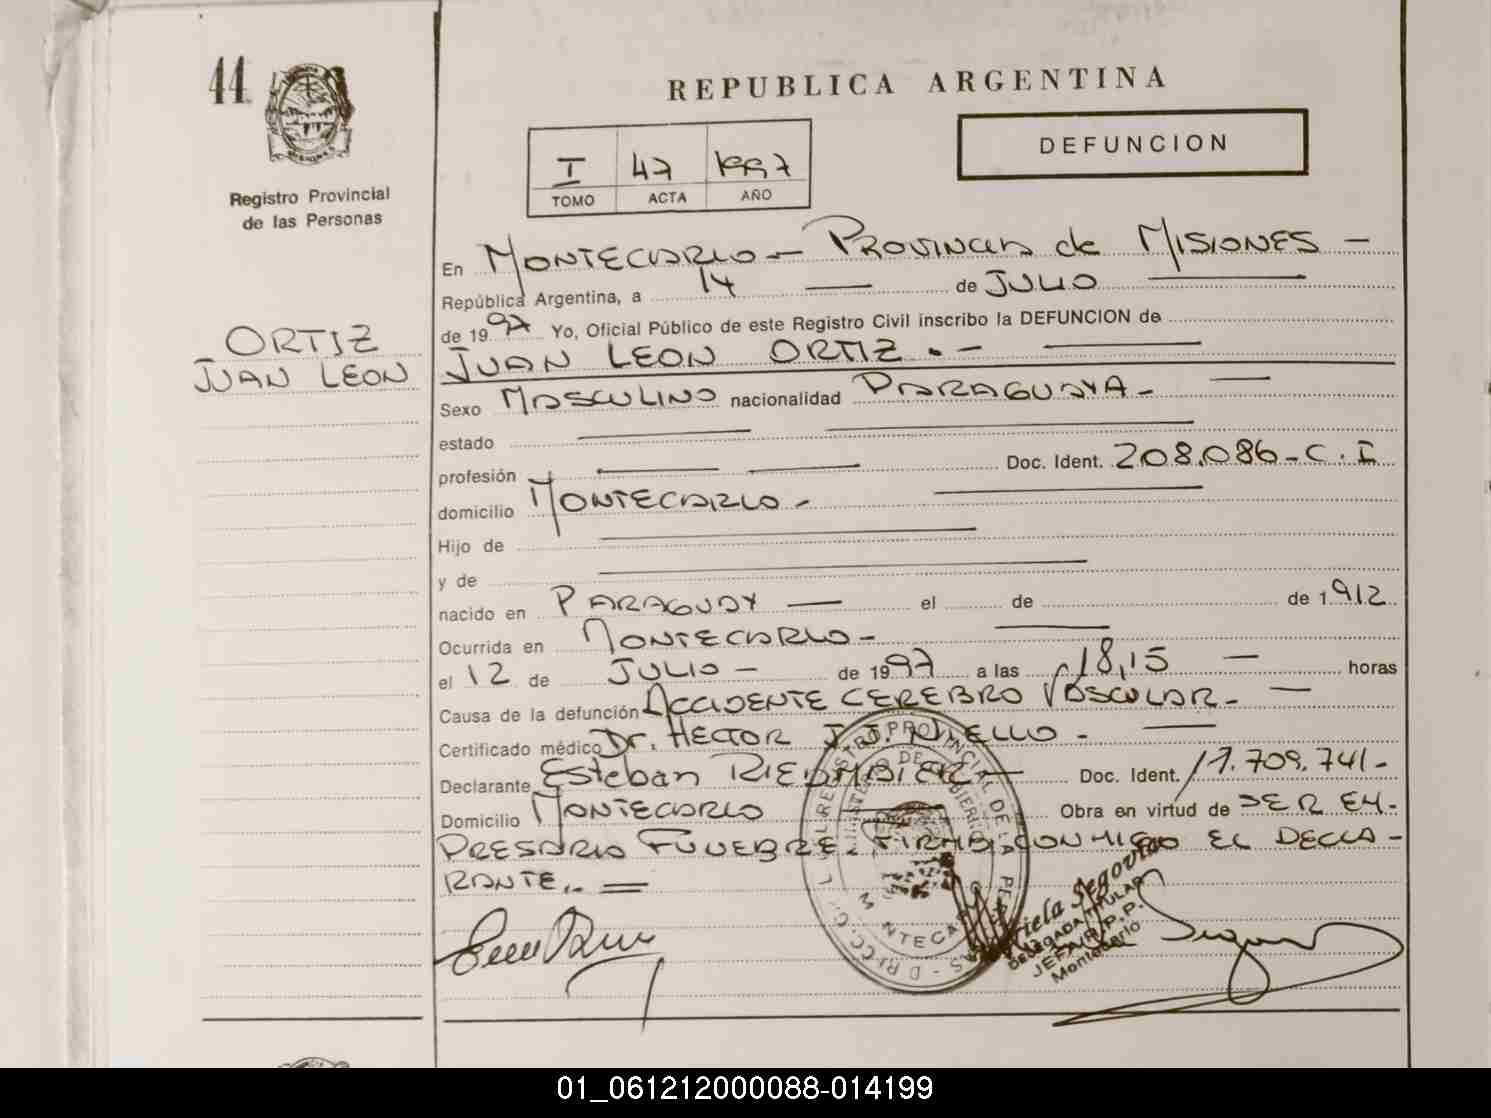 44
REPUBLICA ARGENTINA
DEFUNCION
I 47 1997
TOMO ACTA AÑO
Registro Provincial
de las Personas
ORTIZ
JUAN LEON
En MONTECARLO - PROVINCIA de MISIONES -
República Argentina, a 14 de JULIO
de 1997 Yo, Oficial Público de este Registro Civil inscribo la DEFUNCION de
JUAN LEON ORTIZ.-
Sexo MASCULINO nacionalidad PARAGUAYA-
estado
profesión Doc. Ident. 208.086-C.I
domicilio MONTECARLO-
Hijo de
y de
nacido en PARAGUAY el de de 1912
Ocurrida en MONTECARLO-
el 12 de JULIO - de 1997 a las 18,15 horas
Causa de la defunción ACCIDENTE CEREBRO VASCULAR-
Certificado médico Dr. HECTOR J.J.
Declarante Esteban Doc. Ident. 17.709.741-
Domicilio MONTECARLO Obra en virtud de SER EM-
PRESARIO FUNEBRE. FIRMA CONMIGO EL DECLA-
RANTE.-
REGISTRO PROVINCIAL DE LAS PERSONAS
MINISTERIO DE GOBIERNO
MONTECARLO
Segovia
DELEGADA TITULAR
JEFA R.P.P.
Montecarlo
01_061212000088-014199